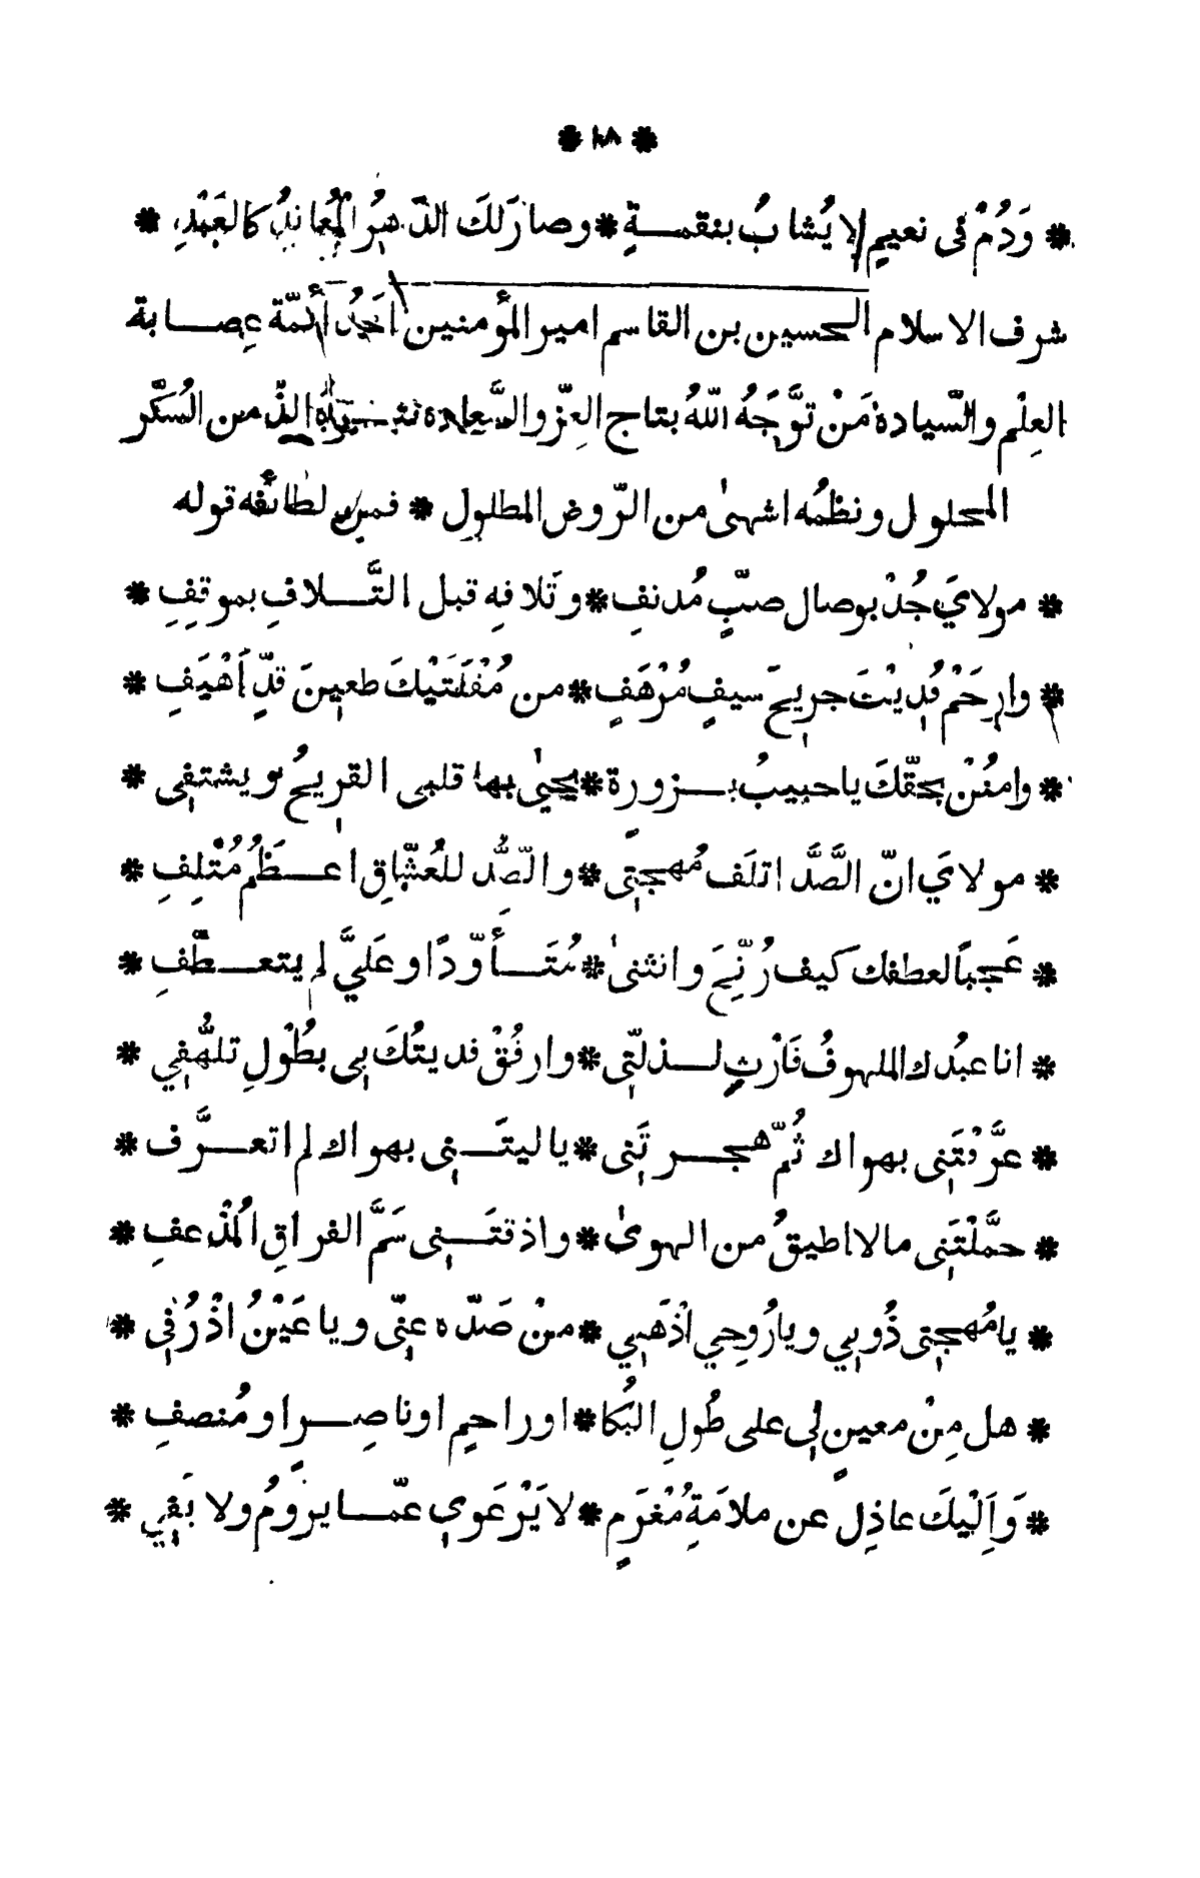 * ١٨ *
* وَدُمْ فى نعيمٍ لا يُشابُ بنقمــةٍ * وصارَلكَ الدّهرُ المُعاندُ كالعَبْدِ *
شرف الاسلام الحسين بن القاسم اميرالمؤمنين احَدُ أئمّة عِصــابة
العِلْم والسّيادة مَنْ توَّجَهُ اللّهُ بتاج العِزّ والسَّعادة نثــره الذّ من السُكّر
المحلول ونظمُه اشهىٰ من الرّوض المطلول * فمن لطائفه قوله
* مولايَ جُدْ بوصال صبٍّ مُدنفِ * وتَلافهِ قبل التَّــلافِ بموقفِ *
* وارحَمْ فُديْتَ جريحَ سيفٍ مُرْهَفٍ * من مُقْلَتَيْكَ طعينَ قدٍّ اَهْيَفِ *
* وامنُنْ بحقّكَ ياحبيبُ بــزورةٍ * يحيىٰ بها قلبى القريحُ ويشتفى *
* مولايَ انّ الصَّدَّ اتلَف مُهجتى * والصّدُّ للعُشّاقِ اعــظَمُ مُتْلِفِ *
* عَجبًا لعطفك كيف رُنِّحَ وانثنىٰ * مُتَــأوّدًا وعَليَّ لم يتعــطّفِ *
* انا عبْدُك الملهوفُ فَارْثِ لــذلّتى * وارفُقْ فديتُكَ بى بطُوْلِ تلهُّفِي *
* عرَّفْتَنى بهواك ثُمّ هجــرتَنى * ياليتَــنى بهواك لم اتعــرَّف *
* حمَّلْتَنى مالا اطيقُ من الهوىٰ * واذقتَــنى سَمَّ الفراقِ المُذْعفِ *
* يامُهجتى ذُوبي ويارُوحِي اذْهَبِي * منْ صَدّه عنّى وياعَيْنُ اذْرُفى *
* هل مِنْ معينٍ لى على طُولِ البُكا * اوراحمٍ اوناصِــرٍ اومُنصفِ *
* وَاِلَيْكَ عاذِل عن ملامَةِ مُغْرَمٍ * لا يَرْعَوى عمّــا يرومُ ولا بَفِي *